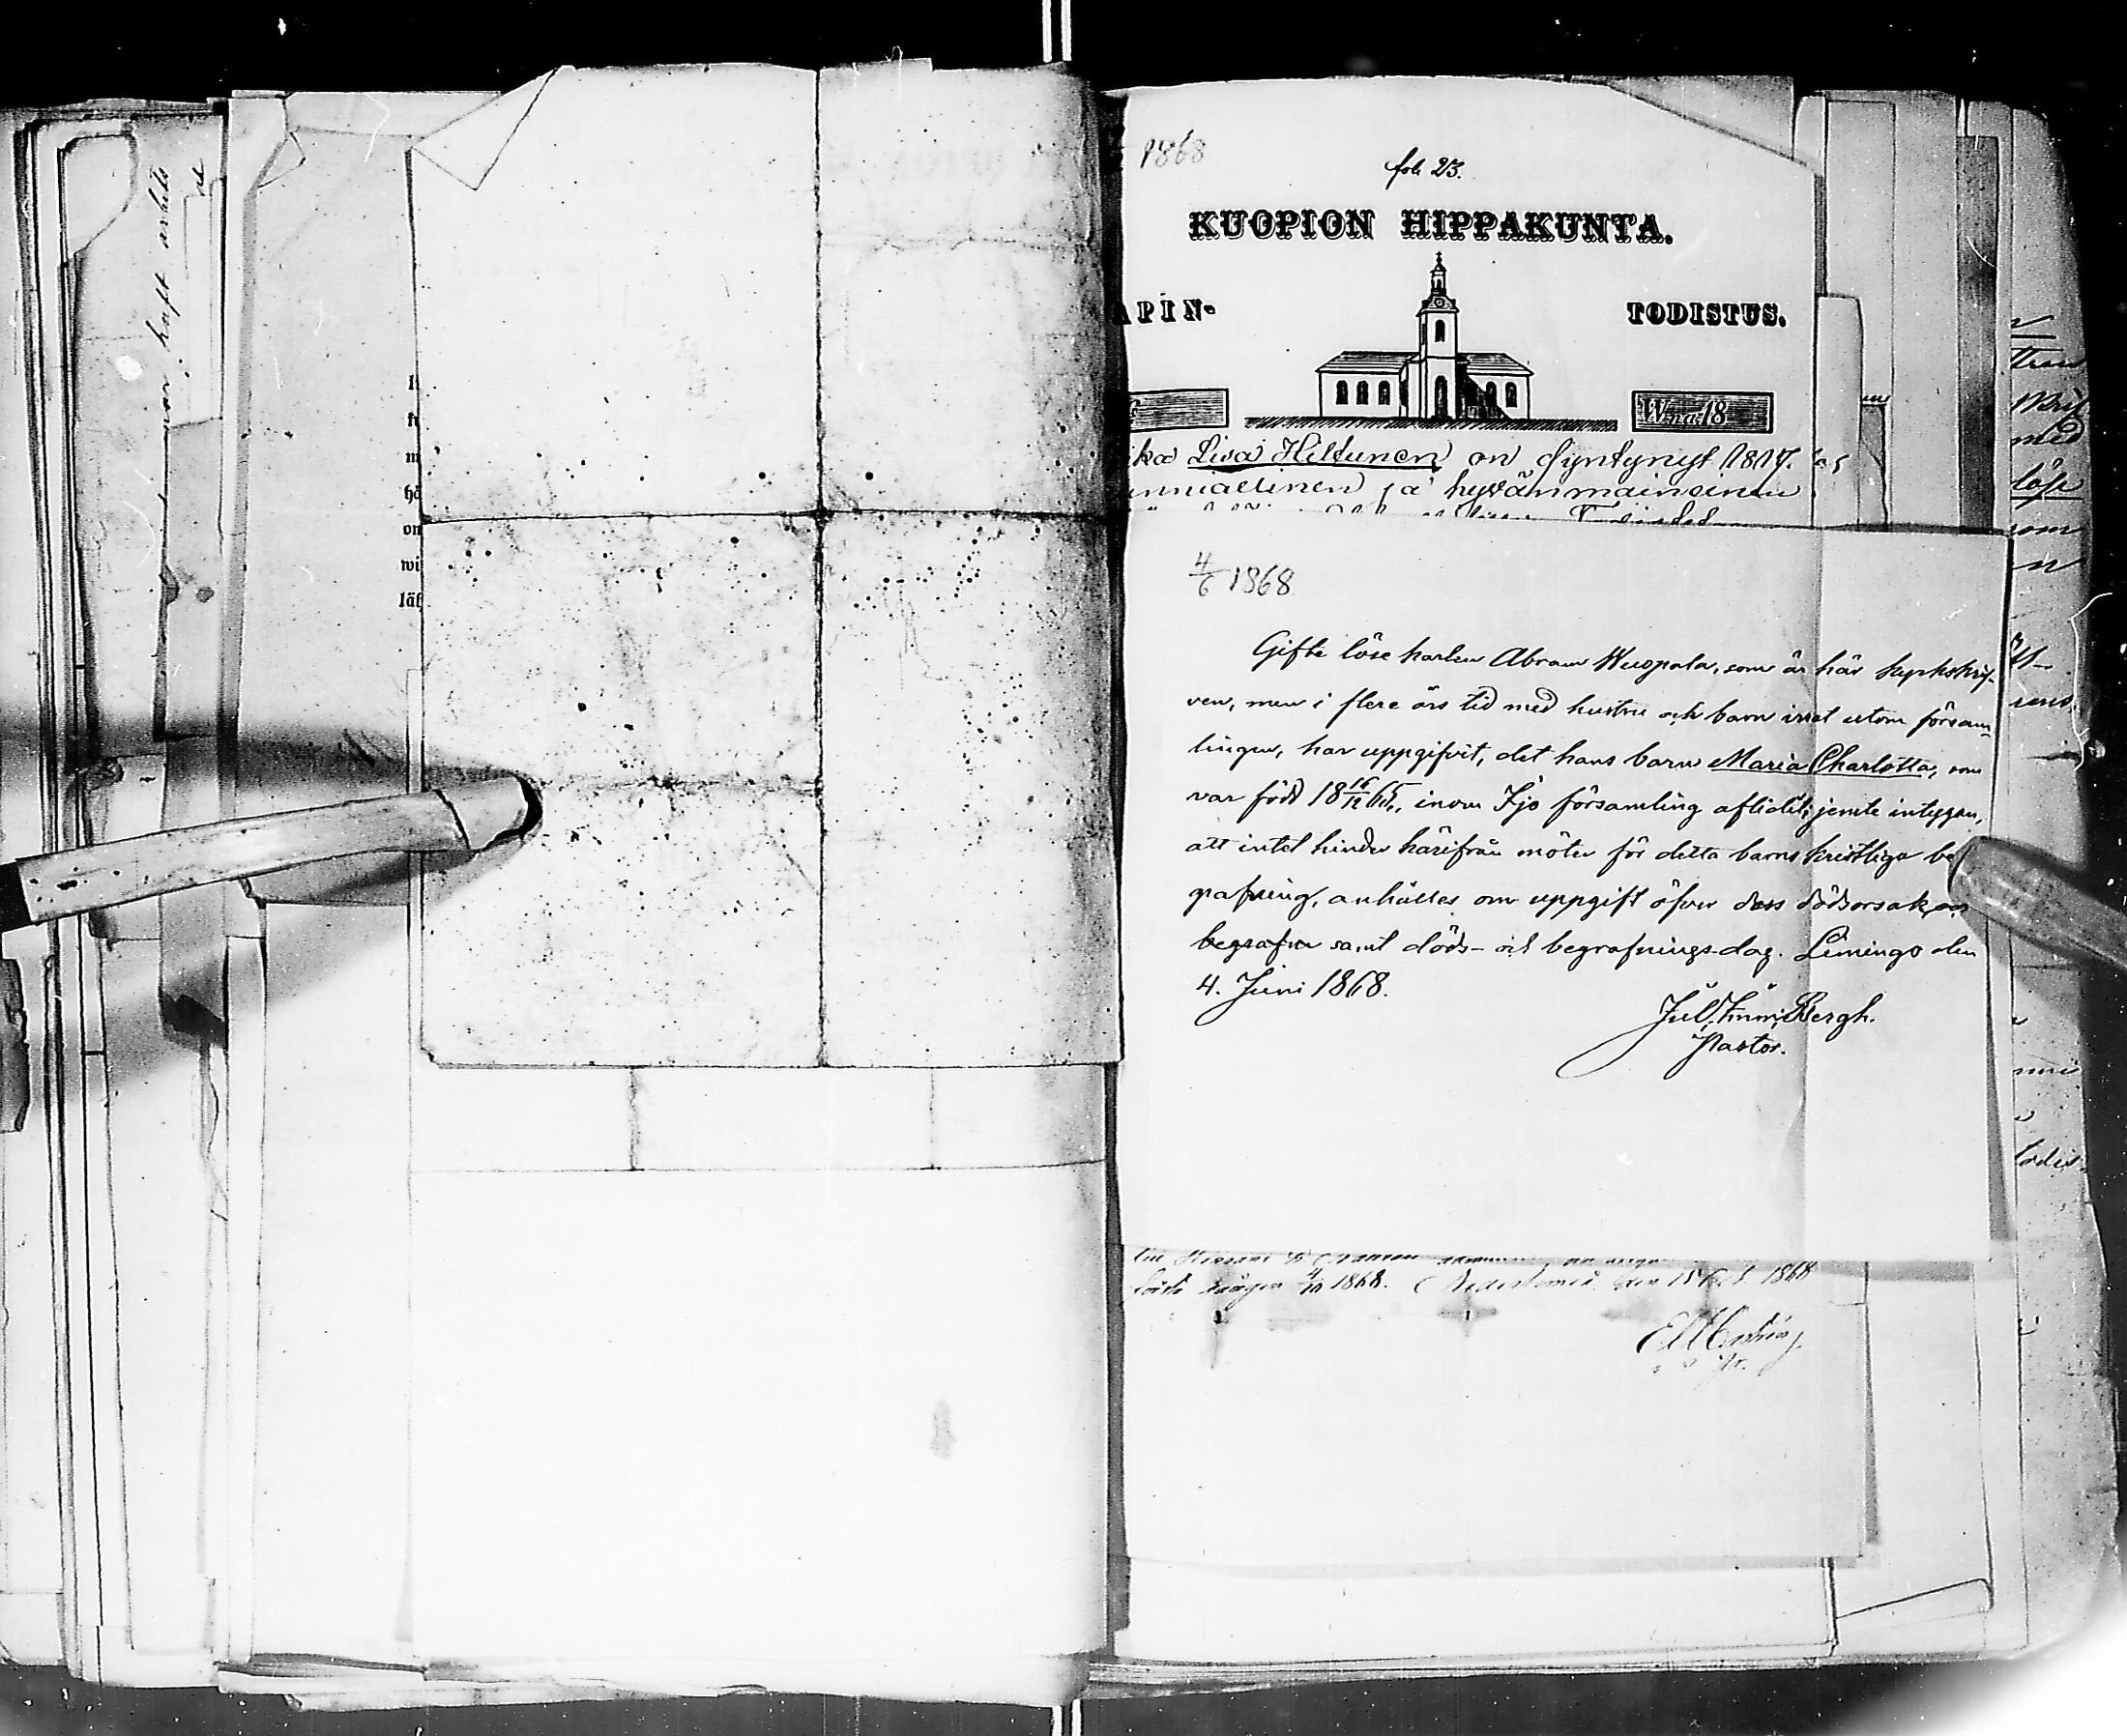 haft arbets
1868
fol. 23.
KUOPION HIPPAKUNTA.
APIN-
TODISTUS.
W:na 18
ika Lisa Hiltunen on syntynyt 1817.
unniallinen ja hyvänmaineinen
4/6 1868
Gifte löse karlen Abram Wuopala, som är här kyrkskrif-
ven, men i flere års tid med hustru och barn irrat utom försam-
lingen, har uppgifvit, det hans barn Maria Charlotta, som
var född 18 16/12 65, inom Ijo församling aflidit; jemte intygan,
att intet hinder härifrån möter för detta barns kristliga be-
grafning, anhålles om uppgift öfver dess dödsorsak,
begrafn samt döds- och begrafnings-dag. Limingo den
4. Juni 1868.
Jul. Imm. Bergh.
Pastor.
4/10 1868. Nederkemi den 15 Oct 1868
tten
med
löse
som
n